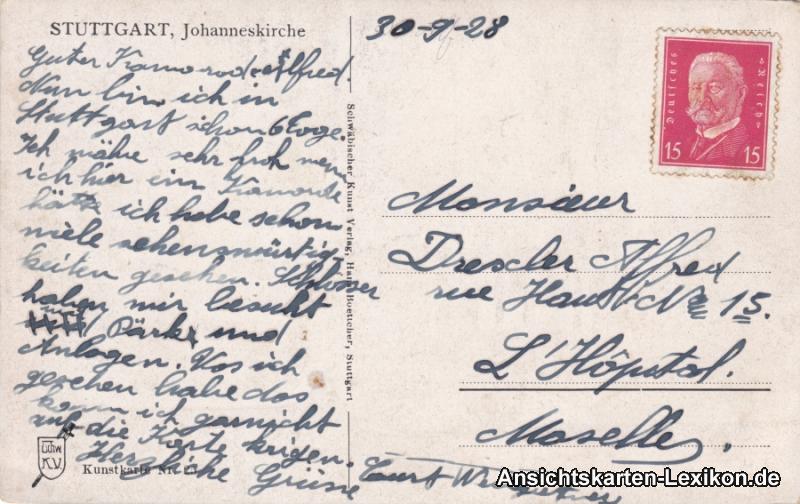 STUTTGART, Johanneskirche
30-9-28
Guter Kamorod Alfred.
Nun bin ich in
Stuttgart schon 6 Toge.
Ich währe sehr froh wenn
ich hier ein Kamorode
hätte ich habe schon
viele sehenswürtig-
keiten gesehen. Schlösser
haben mir besucht
und Pärke und
Anlogen. Was ich
gesehen habe das
kann ich garnicht
auf die Karte krigen.
Herzliche Grüsse
Curt
Schwäbischer Kunst Verlag, Hans Boettcher, Stuttgart
Deutsches Reich
15 15
Monsieur
Drexler Alfred
rue Haute Nr 15.
L'Hôpital.
Moselle.
Schw
K.V.
Kunstkarte Nr. 23
Ansichtskarten-Lexikon.de